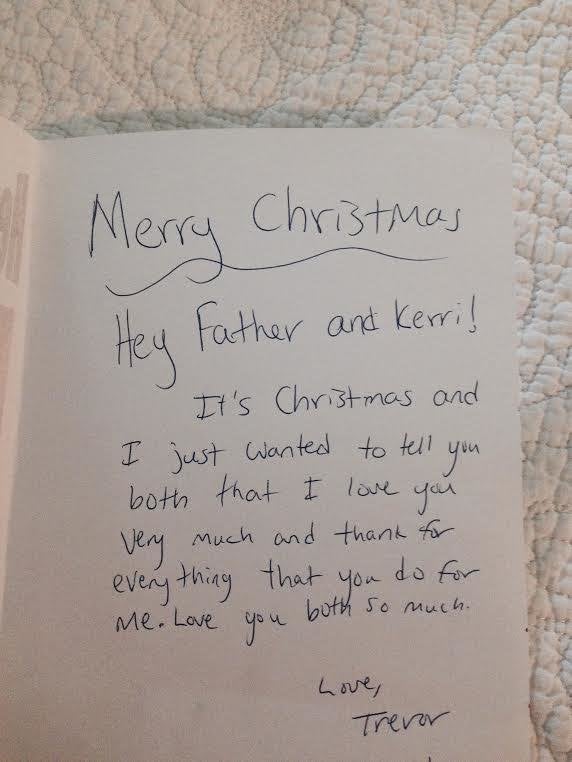 Merry Christmas
Hey Father and Kerri!
It's Christmas and
I just wanted to tell you
both that I love you
very much and thank for
everything that you do for
me. Love you both so much.
Love,
Trevor